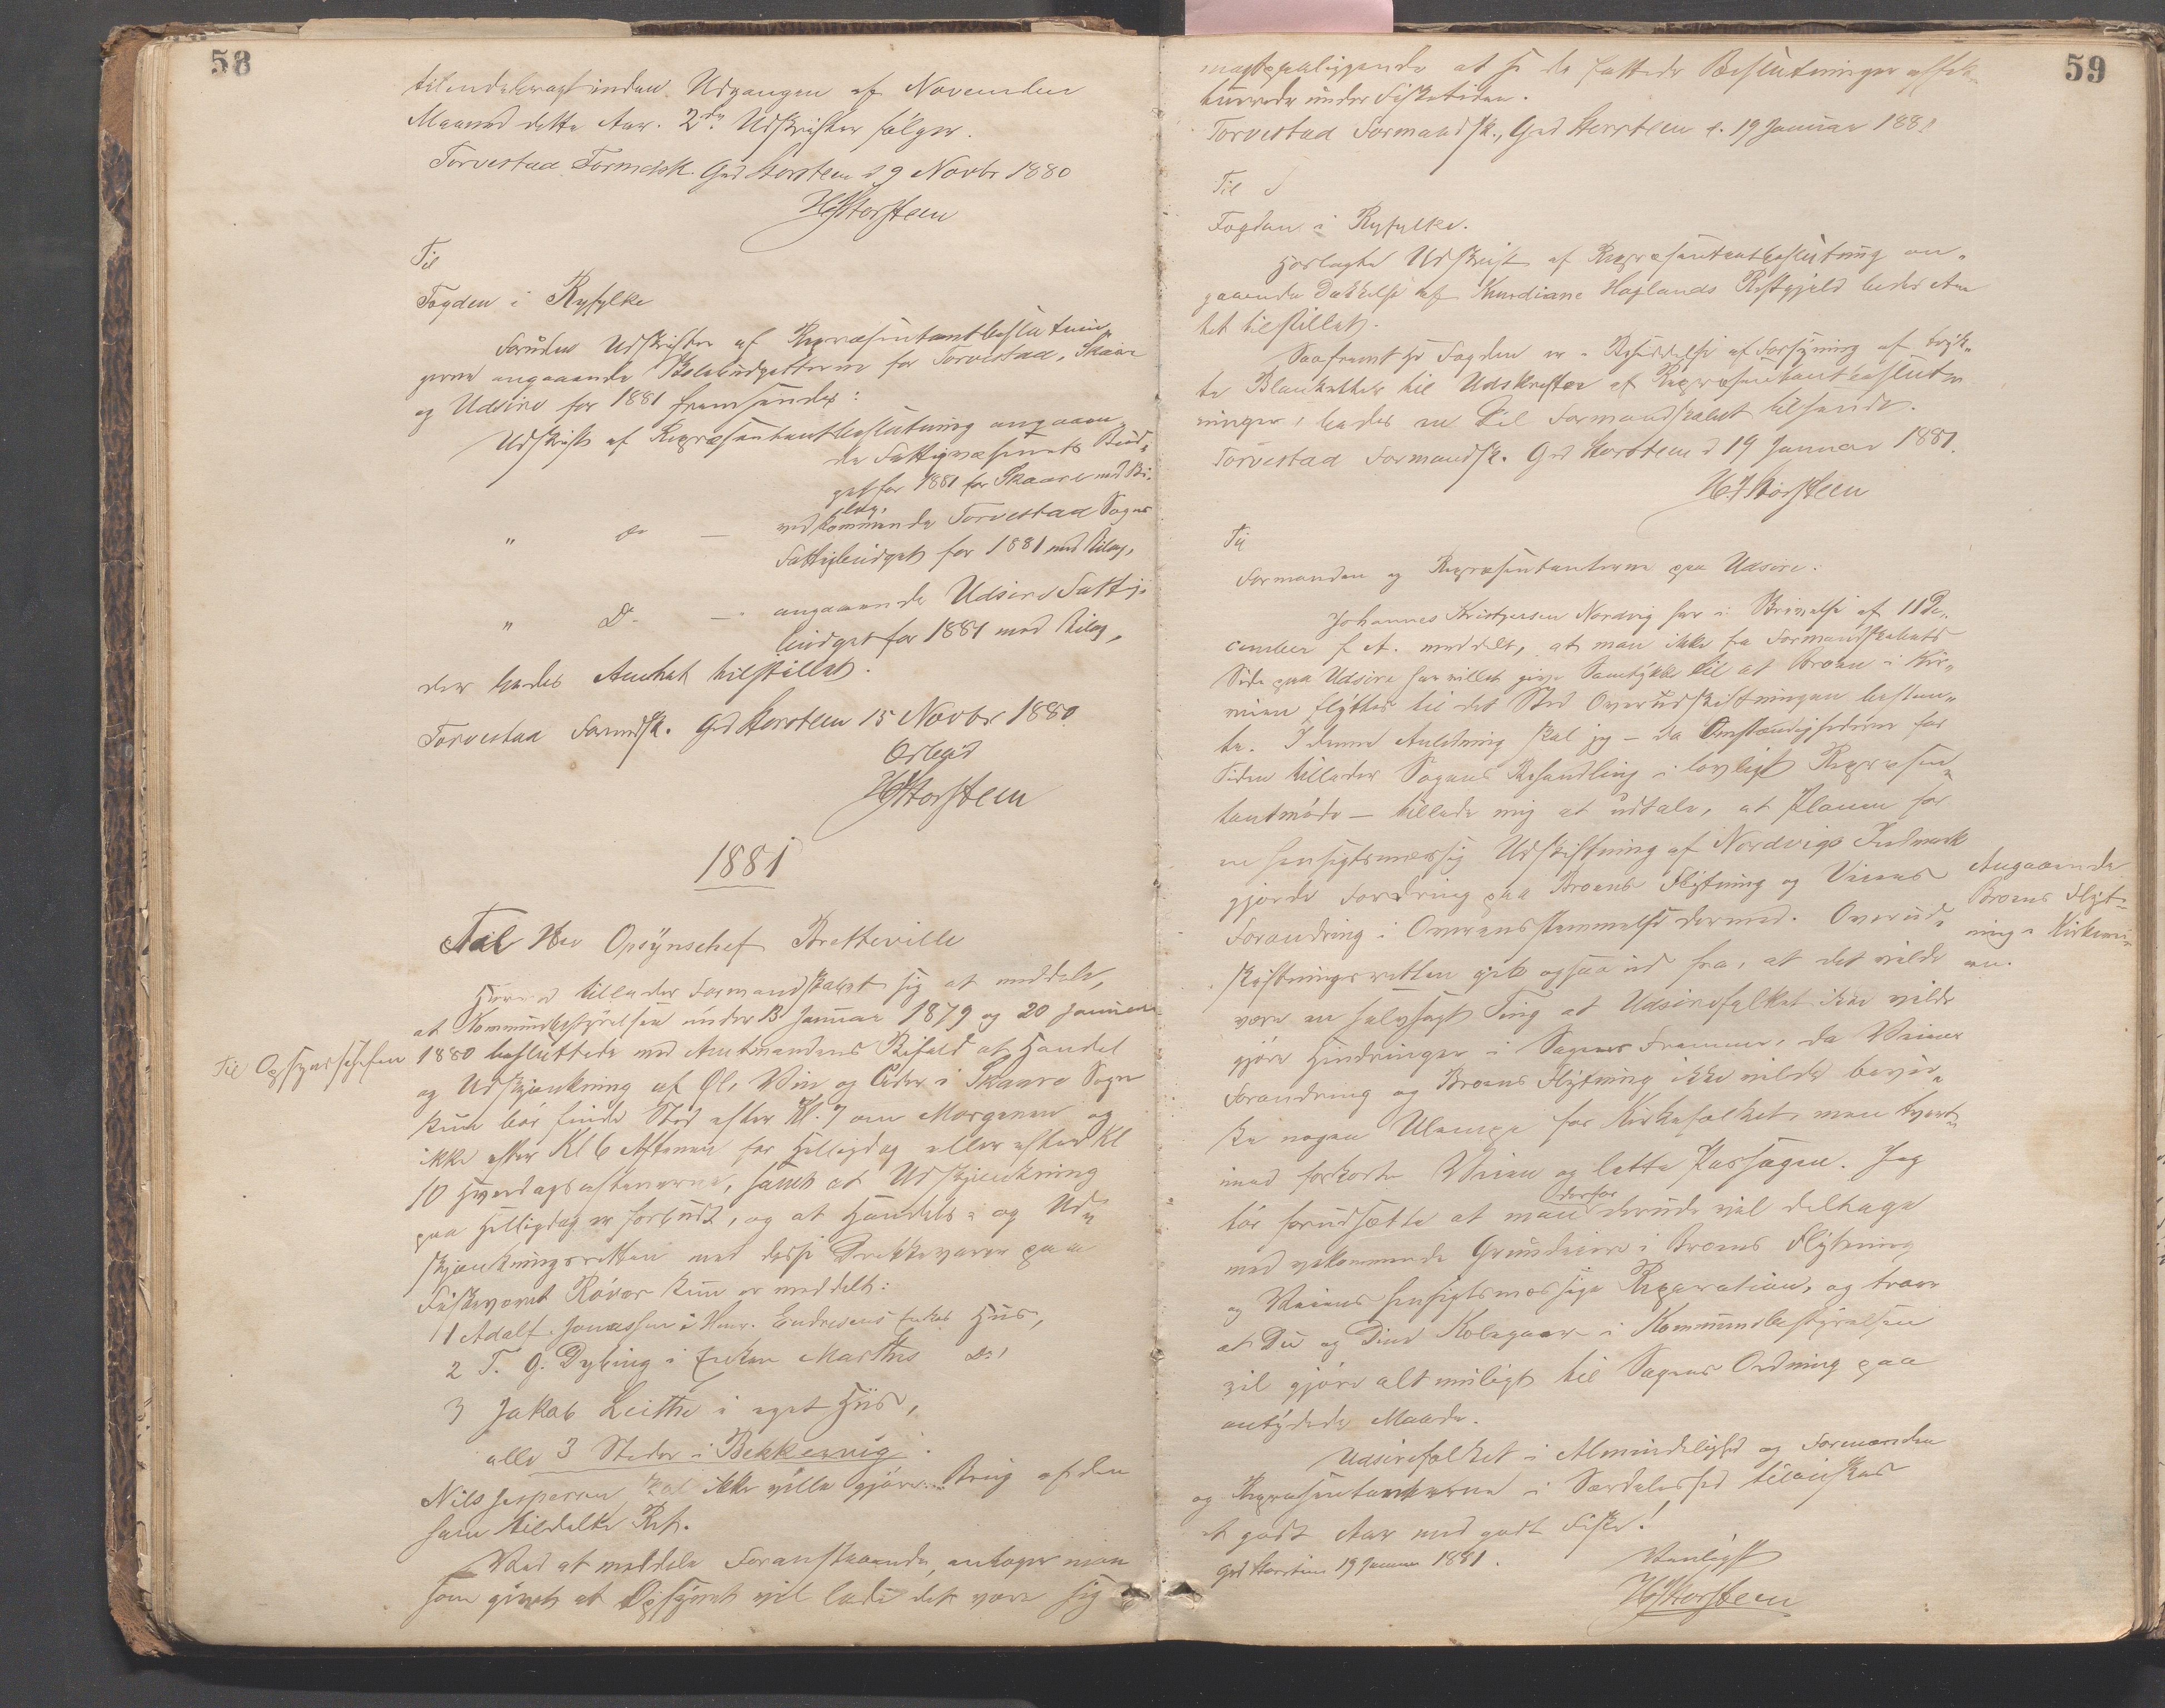 58
tilendebragt inden Udgangen af November
Maaned dette Aar. 2de Udskrifter følger.
Torvestad Formdsk. Grd Storsteen d 9 Novbr 1880
HStorsteen
Til
Fogden i Ryfylke
Foruden Udskrifter af Repræsentantbeslutnin„
gerne angaaende Skolebudgetterne for Torvestad, Skaare
og Udsire for 1881 fremsendes:
Udskrift af Repræsentantbeslutning angaaen„
de Fattigvæsenets Bud„
get for 1881 for Skaare med Bi„
lag,
„ do — vedkommende Torvestad Sogns
Fattigbudget for 1881 med Bilag,
„ Do — angaaende Udsire Fattig„
budget for 1881 med Bilag,
der bedes Amtet tilstillet.
Torvestad Formdsk. Grd Storsteen 15 Novbr 1880
Ærbød
HStorsteen
1881
Til Opsynschefen
Til Hr Opsynschef Bretteville
Herved tillader Formandskabet sig at meddele,
at Kommunebestyrelsen under 13 Januar 1879 og 20 Januar
1880 besluttede med Amtmandens Bifald at Handel
og Udskjænkning af Øl, Vin og Cider i Skaare Sogn
kun bør finde Sted efter Kl. 7 om Morgenen og
ikke efter Kl 6 Aftenen før Helligdag eller efter Kl
10 Hverdagsaftenerne, samt at Udskjænkning
paa Helligdag er forbudt, og at Handels- og Ud„
skjænkningsretten med disse Drikkevarer paa
Fiskeværet Røvær kun er meddelt:
1 Adolf Jonassen i Hmr. Endresens Enkes Hus,
2 T. G. Dybing i Enken Marthes Do,
3 Jakob Leithe i eget Hus,
alle 3 Steder i Bekkervig.
Nils Jespersen skal ikke ville gjøre Brug af den
ham tildelte Ret.
Ved at meddele Foranstaaende, antager man
som givet at Opsynet vil lade det være sig
59
magtpaaliggende at se de fattede Beslutninger effek„
tuerede under Fisketiden.
Torvestad Formandsk., Grd Storsteen d. 19 Januar 1881
Til
Fogden i Ryfylke.
Hoslagte Udskrift af Repræsentantbeslutning an„
gaaende Dækkelse af Knudiane Haglands Restgjæld bedes Am
tet tilstillet.
Saafremt Hr Fogden er i Besiddelse af Forsyning af tryk„
te Blanketter til Udskrifter af Repræsentantbeslut„
ninger, bedes en Del Formandskabet tilsendt.
Torvestad Formandsk. Grd Storsteen d 19 Januar 1881.
HStorsteen
Til
Formanden og Repræsentanterne paa Udsire.
Johannes Kristensen Nordvig har i Skrivelse af 11 De„
cember f. A. meddelt, at man ikke fra Formandskabets
Side paa Udsire har villet give Samtykke til at Broen i Kir„
veien flyttes til det Sted Overudskiftningen bestem„
te. I denne Anledning skal jeg — da Omstændighederne for
Tiden tillader Sagens Behandling i lovligt Repræsen„
tantmøde — tillade mig at udtale, at Planen for
en hensigtsmæssig Udskiftning af Nordvigs Indmark
gjorde Fordring paa Broens Flytning og Veiens
Forandring i Overensstemmelse dermed. Overud„
skiftningsretten gik ogsaa ud fra, at det vilde
være en selvsagt Ting at Udsirefolket ikke vilde
gjøre Hindringer i Sagens Fremme, da Veiens
Forandring og Broens Flytning ikke vilde bevir„
ke nogen Ulempe for Kirkefolket, men tvert„
imod forkorte Veien og lette Passagen. Jeg
tør forudsætte at man derfor derude vil deltage
med vedkommende Grundeiere i Broens Flytning
og Veiens hensigtsmæssige Reparation, og troer
at Du og Dine Kolegaer i Kommunebestyrelsen
vil gjøre alt muligt til Sagens Ordning paa
antydede Maade.
Udsirefolket i Almindelighed og Formanden
og Repræsentanterne i Særdeleshed tilønskes
et godt Aar med godt Fiske!
Grd Storsteen 19 Januar 1881.
Venligst
HStorsteen
Angaaende
Broens Flyt„
ning i Kirkevei„
en.